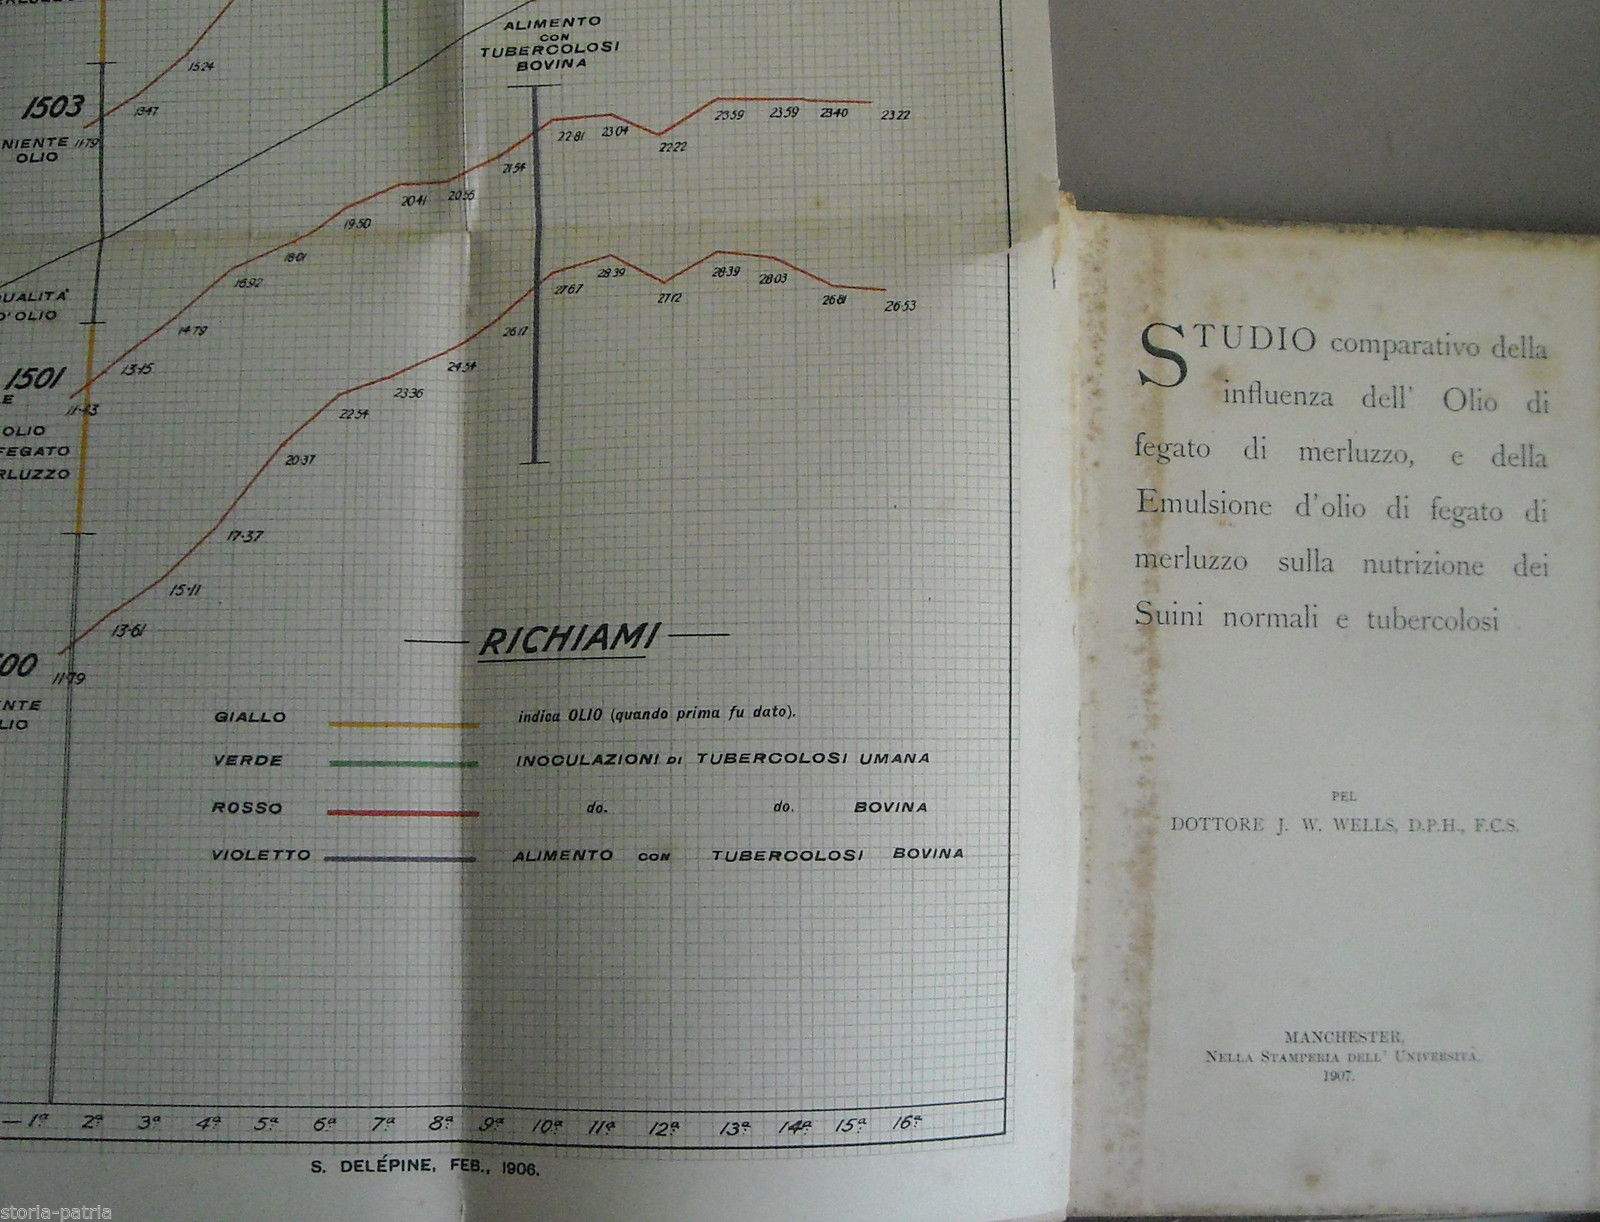 ALIMENTO
CON
TUBERCOLOSI
BOVINA
1524
1347
1503
NIENTE 11·79
OLIO
2281 2304 2222 2359 2359 2340 2322
2154
2055
2041
1950
1801
1692
14·79
13·15
QUALITA'
D'OLIO
1501
11·43
OLIO
FEGATO
RLUZZO
2767 2839 2712 2839 2803 2681 26·53
2617
24·54
2336
2254
20·37
17·37
15·11
13·61
11·79
00
NTE
LIO
RICHIAMI
GIALLO indica OLIO (quando prima fu dato).
VERDE INOCULAZIONI DI TUBERCOLOSI UMANA
ROSSO do. do. BOVINA
VIOLETTO ALIMENTO CON TUBERCOLOSI BOVINA
1ª 2ª 3ª 4ª 5ª 6ª 7ª 8ª 9ª 10ª 11ª 12ª 13ª 14ª 15ª 16ª
S. DELÉPINE, FEB., 1906.
STUDIO comparativo della
influenza dell' Olio di
fegato di merluzzo, e della
Emulsione d'olio di fegato di
merluzzo sulla nutrizione dei
Suini normali e tubercolosi
PEL
DOTTORE J. W. WELLS, D.P.H., F.C.S.
MANCHESTER,
NELLA STAMPERIA DELL' UNIVERSITÀ.
1907.
storia-patria